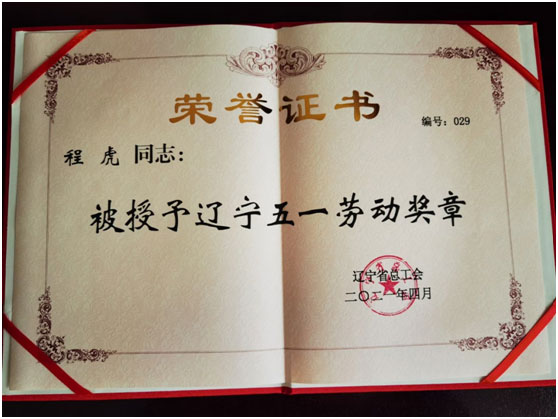 荣誉证书
编号：029
程虎 同志：
被授予辽宁五一劳动奖章
辽宁省总工会
二〇二一年四月